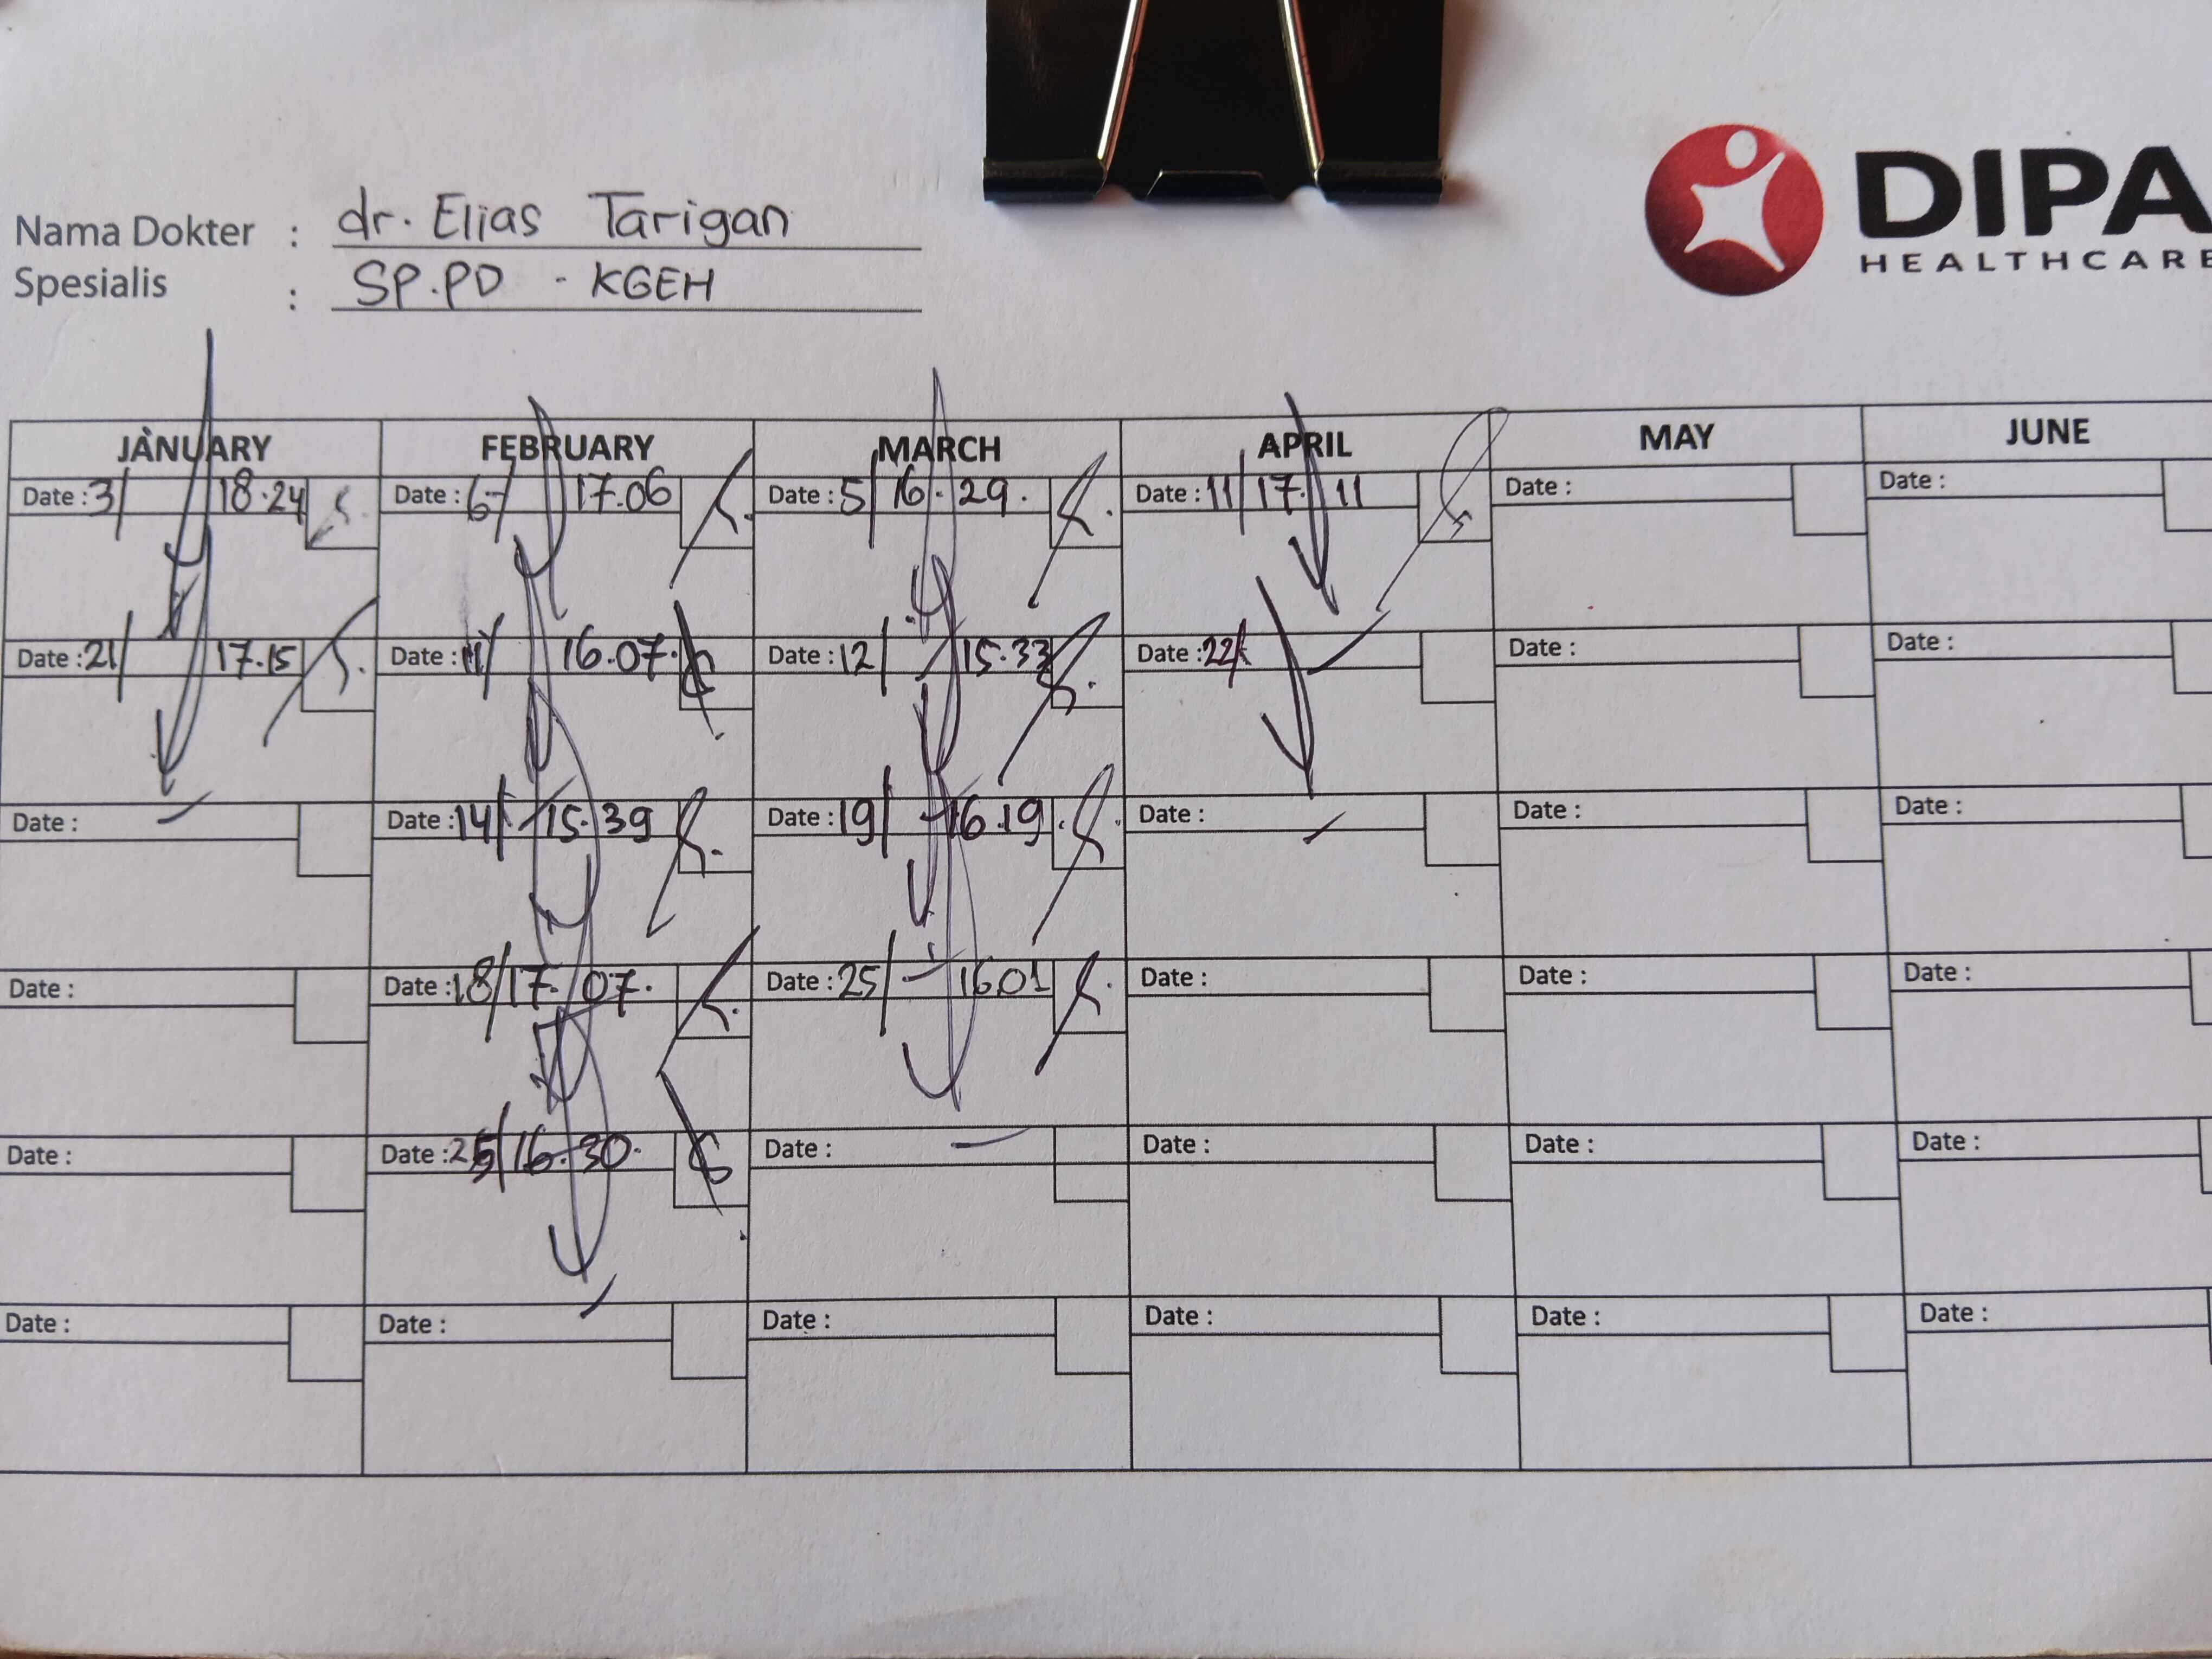 Nama Dokter : dr. Elias Tarigan
Spesialis : SP.PD - KGEH
DIPA
HEALTHCARE
JANUARY FEBRUARY MARCH APRIL MAY JUNE
Date : 3/ 18.24 Date : 6/ 17.06 Date : 5/ 16.29. Date : 11/ 17.11 Date : Date :
Date : 21/ 17.15 Date : 11/ 16.07. Date : 12/ 15.33 Date : 22/ Date : Date :
Date : Date : 14/ 15.39 Date : 19/ 16.19 Date : Date : Date :
Date : Date : 18/ 17.07. Date : 25/ 16.01 Date : Date : Date :
Date : Date : 25/ 16.30. Date : Date : Date : Date :
Date : Date : Date : Date : Date : Date :